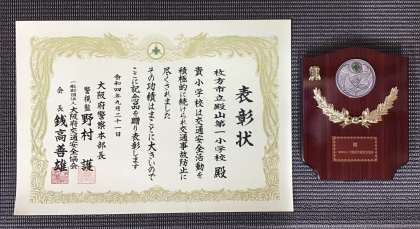 表彰状
枚方市立殿山第一小学校 殿
貴小学校は交通安全活動を
積極的に続けられ交通事故防止に
尽くされました
その功績はまことに大きいので
ここに記念品を贈り表彰します
令和四年九月二十一日
大阪府警察本部長
警視監 野村 護
一般財団法人 大阪府交通安全協会
会長 銭高善雄